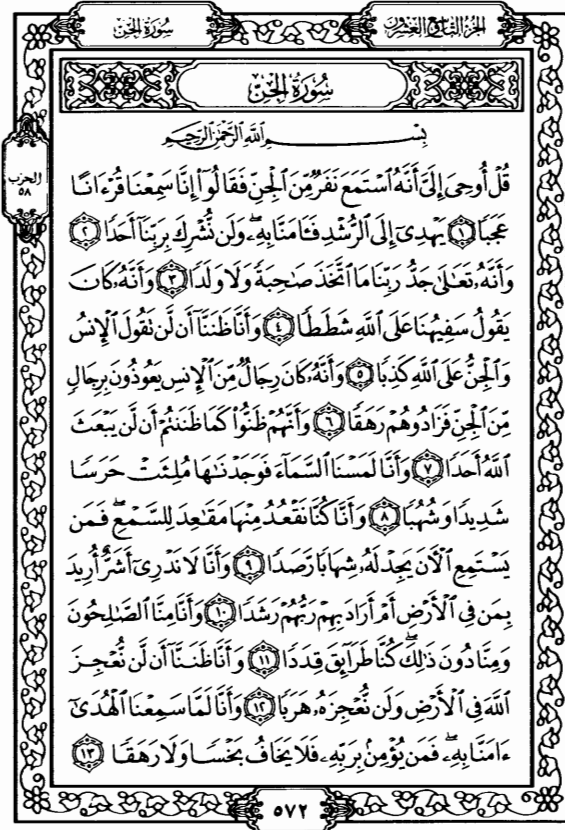 الجزء التاسع والعشرون
سُورَةُ الجِنِّ
سُورَةُ الجِنِّ
الحزب
٥٨
بِسْمِ ٱللَّهِ ٱلرَّحْمَٰنِ ٱلرَّحِيمِ
قُلْ أُوحِىَ إِلَىَّ أَنَّهُ ٱسْتَمَعَ نَفَرٌ مِّنَ ٱلْجِنِّ فَقَالُوٓا۟ إِنَّا سَمِعْنَا قُرْءَانًا
عَجَبًا ١ يَهْدِىٓ إِلَى ٱلرُّشْدِ فَـَٔامَنَّا بِهِۦ ۖ وَلَن نُّشْرِكَ بِرَبِّنَآ أَحَدًا ٢
وَأَنَّهُۥ تَعَٰلَىٰ جَدُّ رَبِّنَا مَا ٱتَّخَذَ صَٰحِبَةً وَلَا وَلَدًا ٣ وَأَنَّهُۥ كَانَ
يَقُولُ سَفِيهُنَا عَلَى ٱللَّهِ شَطَطًا ٤ وَأَنَّا ظَنَنَّآ أَن لَّن تَقُولَ ٱلْإِنسُ
وَٱلْجِنُّ عَلَى ٱللَّهِ كَذِبًا ٥ وَأَنَّهُۥ كَانَ رِجَالٌ مِّنَ ٱلْإِنسِ يَعُوذُونَ بِرِجَالٍ
مِّنَ ٱلْجِنِّ فَزَادُوهُمْ رَهَقًا ٦ وَأَنَّهُمْ ظَنُّوا۟ كَمَا ظَنَنتُمْ أَن لَّن يَبْعَثَ
ٱللَّهُ أَحَدًا ٧ وَأَنَّا لَمَسْنَا ٱلسَّمَآءَ فَوَجَدْنَٰهَا مُلِئَتْ حَرَسًا
شَدِيدًا وَشُهُبًا ٨ وَأَنَّا كُنَّا نَقْعُدُ مِنْهَا مَقَٰعِدَ لِلسَّمْعِ ۖ فَمَن
يَسْتَمِعِ ٱلْـَٔانَ يَجِدْ لَهُۥ شِهَابًا رَّصَدًا ٩ وَأَنَّا لَا نَدْرِىٓ أَشَرٌّ أُرِيدَ
بِمَن فِى ٱلْأَرْضِ أَمْ أَرَادَ بِهِمْ رَبُّهُمْ رَشَدًا ١٠ وَأَنَّا مِنَّا ٱلصَّٰلِحُونَ
وَمِنَّا دُونَ ذَٰلِكَ ۖ كُنَّا طَرَآئِقَ قِدَدًا ١١ وَأَنَّا ظَنَنَّآ أَن لَّن نُّعْجِزَ
ٱللَّهَ فِى ٱلْأَرْضِ وَلَن نُّعْجِزَهُۥ هَرَبًا ١٢ وَأَنَّا لَمَّا سَمِعْنَا ٱلْهُدَىٰٓ
ءَامَنَّا بِهِۦ ۖ فَمَن يُؤْمِنۢ بِرَبِّهِۦ فَلَا يَخَافُ بَخْسًا وَلَا رَهَقًا ١٣
٥٧٢